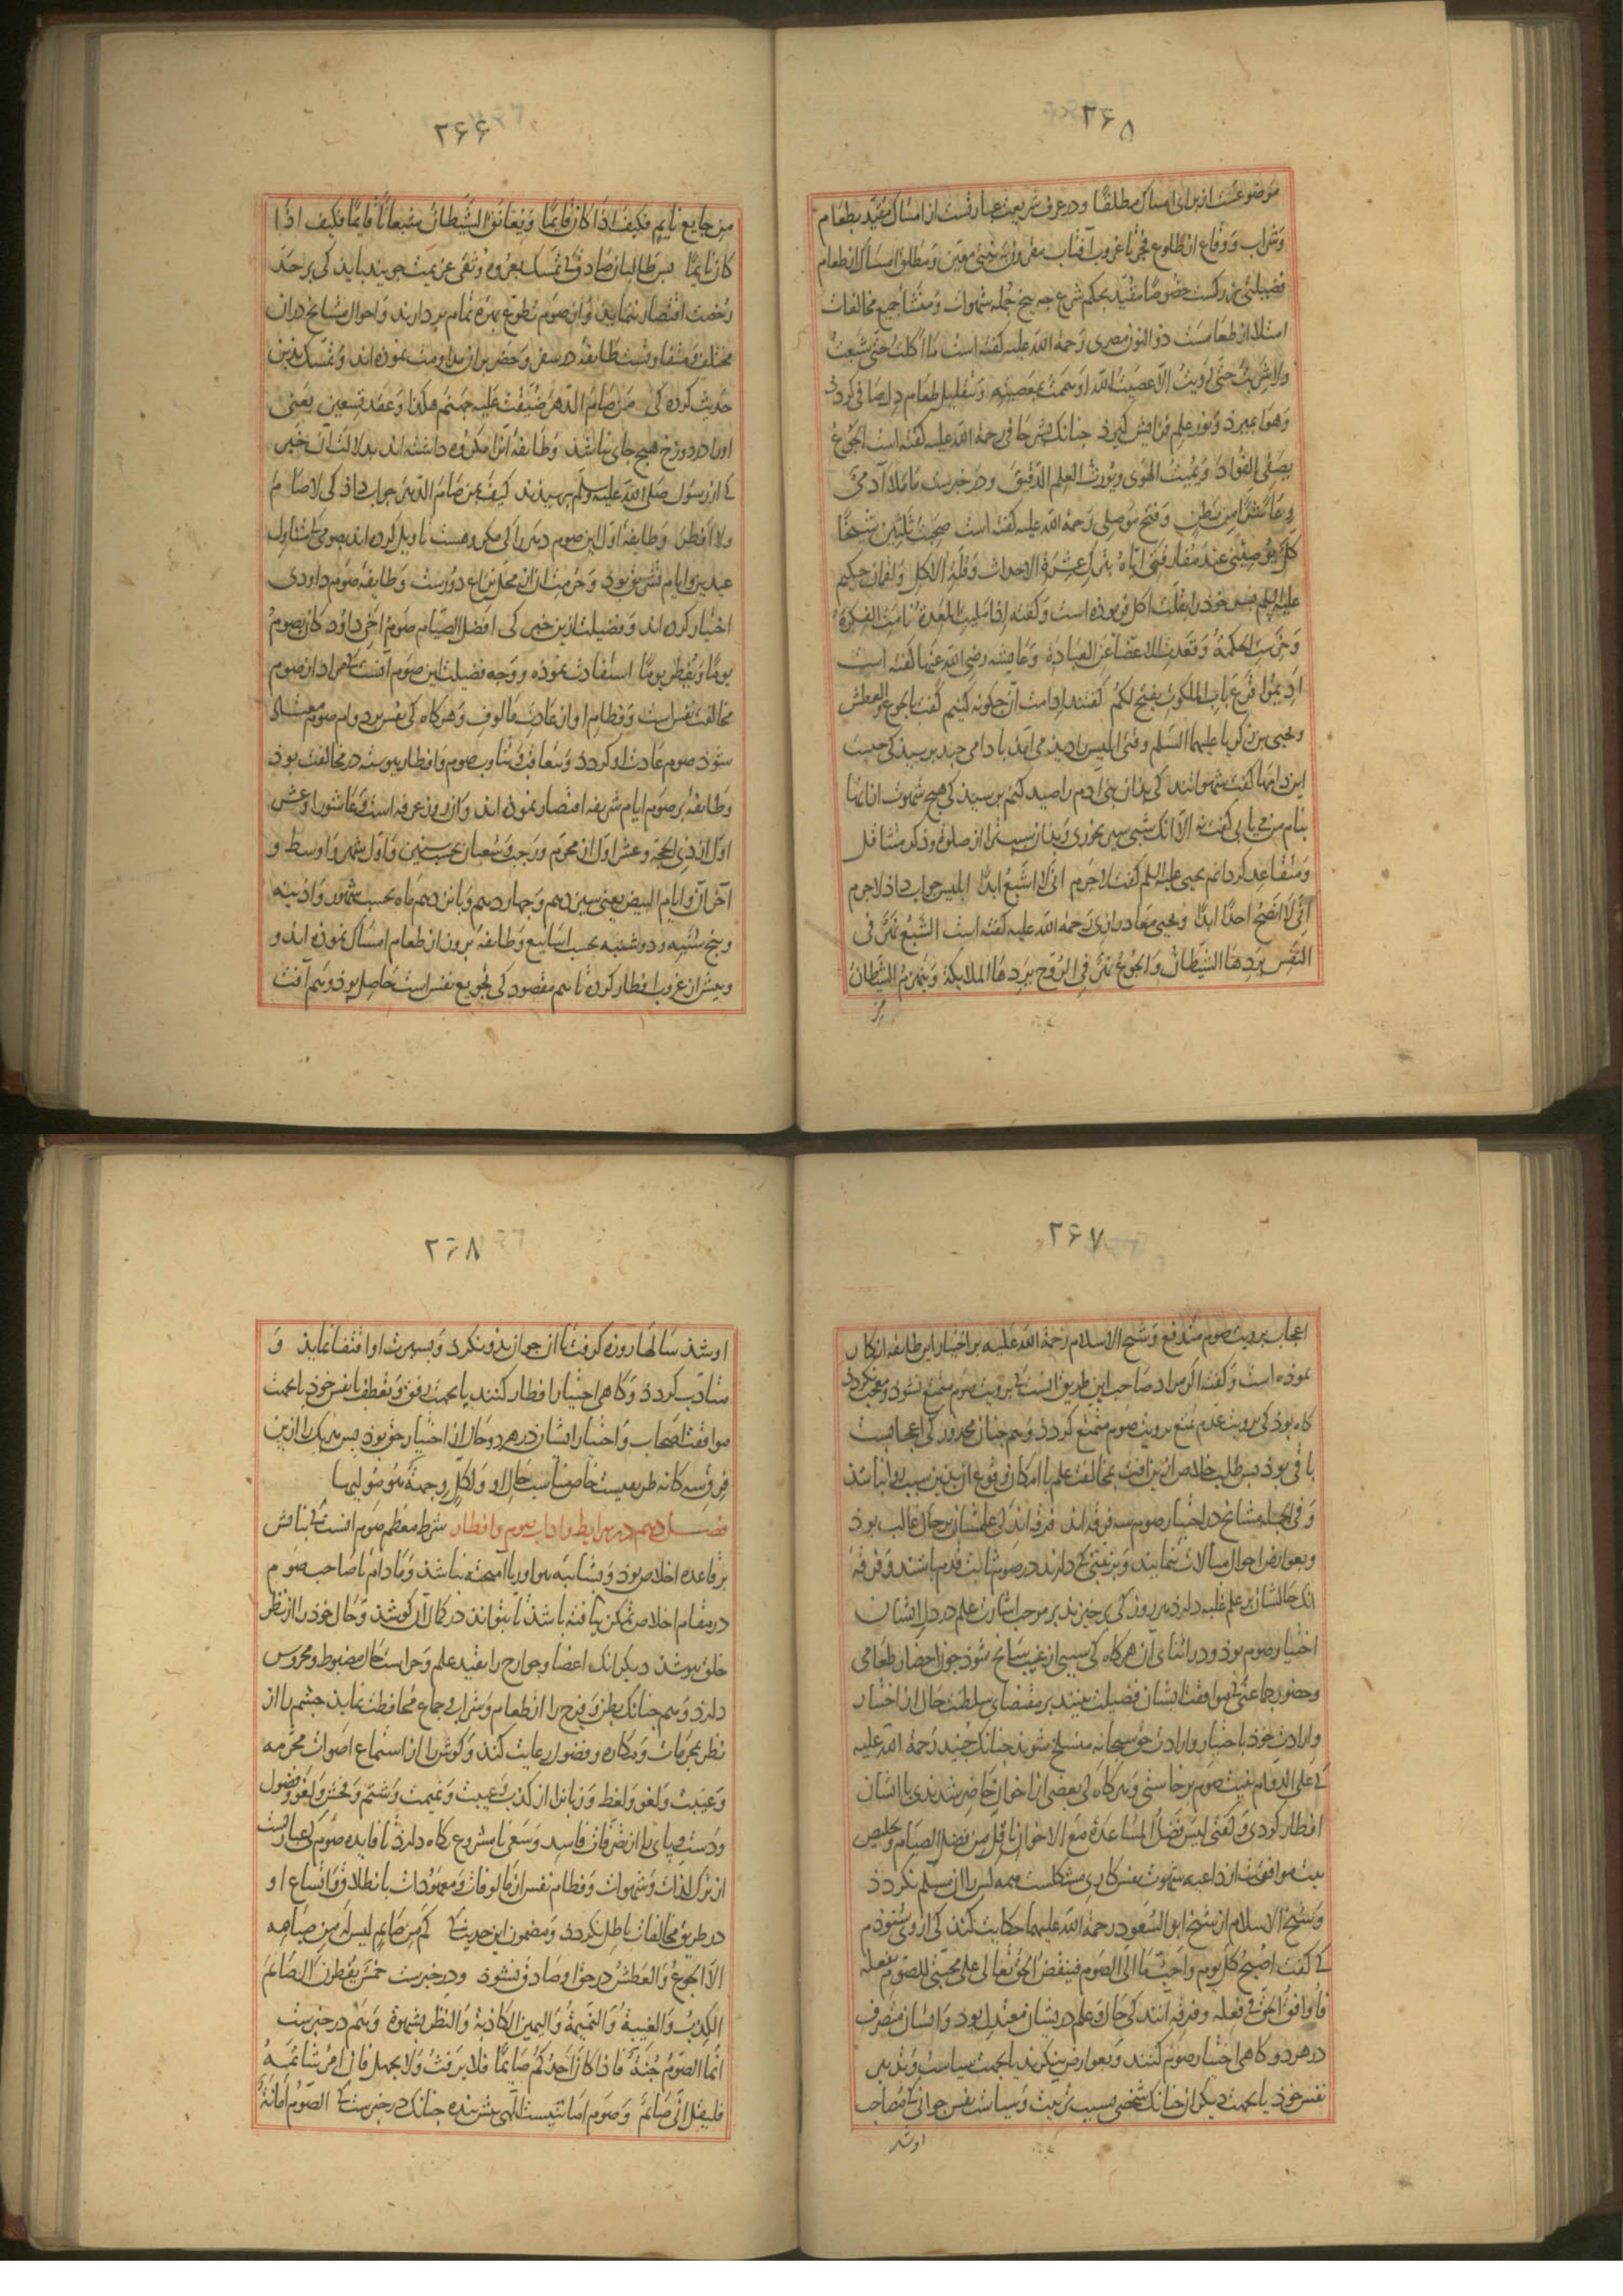 ۲۶۵
موضوعست از برای امساک مطلقا و در عرف شریعت عبارتست از امساک مقید بطعام
و شراب و وقاع از طلوع فجر تا غروب آفتاب مقرون بنیتی معین و مطلق امساک از طعام
فضیلتی بزرکست خصوصا مقید بحکم شرع چه بیخ جمله شهوات و منشأ جمیع مخالفات
امتلا از طعامست ذو النون مصری رحمة الله علیه کفته است ما اکلت حتی شبعت
ولا شربت حتی رویت الا عصیت الله او هممت بمعصیته و بتقلیل طعام دل صافی کردد
و هوا بمیرد و نور علم فزایش کیرد چنانک بشر حافی رحمة الله علیه کفته است الجوع
یصفی الفؤاد و یمیت الهوی و یورث العلم الدقیق و در خبرست ما ملأ آدمی
وعاء شرا من بطن و فتح موصلی رحمة الله علیه کفته است صحبت ثلثین شیخا
کل یوصینی عند مفارقتی ایاه بترک عشرة الاحداث و قلة الاکل و لقمان حکیم
علیه السلم پسر خود را بقلت اکل فرموده است و کفته اذا ملیت المعدة نامت الفکرة
و خرست الحکمة و قعدت الاعضا عن العبادة و عایشه رضی الله عنها کفته است
ادیموا قرع باب الملکوت یفتح لکم کفتند ادامت آن چکونه کنیم کفت بالجوع و العطش
و یحیی بن زکریا علیهما السلم وقتی ابلیس را دید می آمد با دامی چند پرسید کی چیست
این دامها کفت شهواتند کی بدان بنی آدم را صید کنم پرسید کی هیچ شهوت از آنها
بنام من می یابی کفت نه الا آنک شبی سیر بخوردی و بدان سبب ترا از صلوة و ذکر متثاقل
و متقاعد کردانم یحیی علیه السلم کفت لاجرم انی لا اشبع ابدا ابلیس جواب داد لاجرم
انی لا انصح احدا ابدا و یحیی معاد رازی رحمة الله علیه کفته است الشبع نهر فی
النفس یردها الشیطان و الجوع نهر فی الروح یردها الملایکة و ینهزم الشیطان
من
۲۶۶
من جایع نایم فکیف اذا کان قایما و یعانق الشیطان شبعانا قایما فکیف اذا
کان نایما پس طالبان صادق کی تمسک بعروه وثقی عزیمت جویند باید کی بر حد
رخصت اقتصار ننمایند و از صوم تطوع بهره تمام بردارند و احوال مشایخ در آن
مختلف و متفاوتست طایفه در سفر و حضر بر آن مداومت نموده اند و تمسک بدین
حدیث کرده کی من صام الدهر ضیقت علیه جهنم هکذا و عقد تسعین یعنی
او را در دوزخ هیچ جای نباشد و طایفه آنرا مکروه داشته اند بدلالت آن خبر
کی از رسول صلی الله علیه و سلم پرسیدند کیف بمن صام الدهر جواب داد کی لا صام
ولا افطر و طایفه اول این صوم دهر را کی مکروهست تاویل کرده اند بصومی کی متناول
عیدین و ایام تشریق بود و حرمت از آن محل نزاع دورست و طایفه صوم داودی
اختیار کرده اند و فضیلت از این خبر کی افضل الصیام صوم اخی داود کان یصوم
یوما و یفطر یوما استفادت نموده و وجه فضیلت این صوم آنست کی مراد از صوم
مخالفت نفس است و فطام او از عادت مالوف و هر کاه کی نفس بر دوام صوم معتاد
شود صوم عادت او کردد و بتعاقب و تناوب صوم و افطار پیوسته در مخالفت بود
و طایفه بر صوم ایام شریفه اقتصار نموده اند و آن روز عرفه است و عاشورا و عشر
اول از ذی الحجه و عشر اول از محرم و رجب و شعبان بحسب سنین و اول شهر و اوسط و
آخر آن و ایام البیض یعنی سیزدهم و چهاردهم و پانزدهم ماه بحسب شهور و آذینه
و پنج شنبه و دوشنبه بحسب اسابیع و طایفه برون از طعام امساک نموده اند و
پیش از غروب افطار کرده تا هم مقصود کی تجویع نفس است حاصل بود و هم آفت
۲۶۷
اعجاب برؤیت صوم مندفع و شیخ الاسلام رحمة الله علیه بر اختیار این طایفه انکار
نموده است و کفته اکر مراد صاحب این طریق آنست کی برؤیت صوم متمتع نشود و معجب نکردد
کاه بود کی برؤیت عدم تمتع برؤیت صوم متمتع کردد و هم چنان محذور کی اعجابست
باقی بود پس طلب خلاص از این آفت بمخالفت علم با امکان وقوع از بدین سبب روا نباشد
و فی الجمله مشایخ در اختیار صوم سه فرقه اند فرقه آنند کی علمشان بر حال غالب بود
و بعوارض احوال مبالات ننمایند و بر نیتی کی دارند در صوم ثابت قدم باشند و فرقه
آنک حالشان بر علم غلبه دارد هر روز کی برخیزند بر موجب اشارت علم در دل ایشان
اختیار صوم بود و در اثنای آن هر کاه کی سببی از غیب سانح شود چون احضار طعامی
و حضور جماعتی کی موافقت ایشان فضیلت بینند بر مقتضای سلطنت حال از اختیار
و ارادت خود باختیار و ارادت حق سبحانه منسلخ شوند چنانک جنید رحمة الله علیه
کی علی الدوام بنیت صوم برخاستی و هر کاه کی بعضی از اخوان حاضر شدندی با ایشان
افطار کردی و کفتی لیس فضل المساعدة مع الاخوان باقل من فضل الصیام و تخلیص
نیت موافقت از داعیه شهوت نفس کاری مشکلست همه کس را آن مسلم نکردد
و شیخ الاسلام از شیخ ابو السعود رحمة الله علیهما حکایت کند کی از وی شنودم
کی کفت اصبح کل یوم و احب ما الی الصوم فینقض الحق تعالی علی محبتی للصوم بفعله
فاوافق الحق فی فعله و فرقه آنند کی حال و علم در یشان معتدل بود و ایشان متصرف
در هر دو کاهی اختیار صوم کنند و بعوارض ننکرند یا بجهت سیاست و تدبیر
نفس خود یا بجهت دیکران چنانک شخصی بسبب تربیت و سیاست نفس جوانی کی مصاحب
او شد
۲۶۸
او شد سالها روزه کرفت تا آن جوان بدو نکرد و بسیرت او اقتفا نماید و
متادب کردد و کاهی اختیار افطار کنند یا بجهت رفق و تعطف با نفس خود یا بجهت
موافقت اصحاب و اختیار ایشان در هر دو حال از اختیار حق بود پس هر یک را از این
فرق سه کانه طریقیست خاص مناسب حال او و لکل وجهة هو مولیها
فصل دهم در شرایط و آداب صوم و افطار شرط معظم صوم آنست کی بناش
بر قاعده اخلاص بود و بشایبه هوا و ریا آمیخته نباشد و مادام تا صاحب صوم
در مقام اخلاص تمکن نیافته باشد تا بتواند در کتمان آن کوشد و حال خود را از نظر
خلق بپوشد دیکر آنک اعضا و جوارح را بقید علم و حراست حال مضبوط و محروس
دارد و هم چنانک بطن و فرج را از طعام و شراب و جماع محافظت نماید چشم را از
نظر بمحرمات و مکاره و فضول رعایت کند و کوش را از استماع اصوات محرمه
و غیبت و لغو و لغط و زبانرا از کذب و غیبت و نمیمت و شتم و فحش و لغو و فضول
و دست و پای را از تصرفات فاسد و سعی نامشروع نکاه دارد تا فایده صوم کی عبارتست
از ترک لذات و شهوات و فطام نفس از مالوفات و معهودات بانطلاق و اتساع او
در طریق مخالفات باطل نکردد و مضمون این حدیث کی کم من صایم لیس له من صیامه
الا الجوع و العطش در حق او صادق نشود و در خبرست خمس یفطرن الصایم
الکذب و الغیبة و النمیمة و الیمین الکاذبة و النظر بشهوة و هم در خبرست
انما الصوم جنة فاذا کان احدکم صایما فلا یرفث ولا یجهل فان امرؤ شاتمه
فلیقل انی صایم و صوم امانتیست الهی پیش بنده چنانک در خبرست کی الصوم امانة